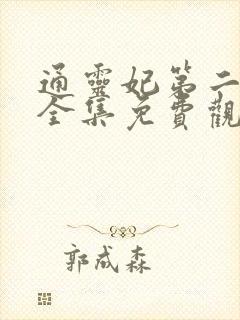 通靈妃第二
全集免費觀
郭成森